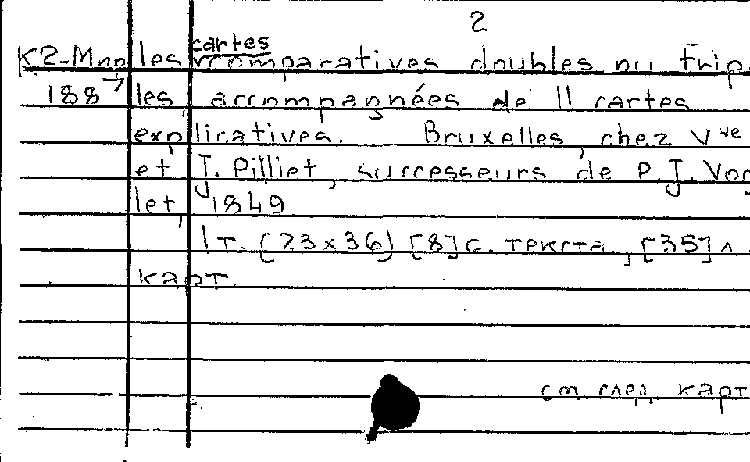 2
cartes
К2-Мпр les comparatives doubles ou trip
188 les, accompagnées de 11 cartes
explicatives. Bruxelles, chez Vve
et J. Pilliet, successeurs de P.J. Vog
let, 1849.
1 т. (23x36) [8] с. текста, [35] л.
карт.
см. след. карт